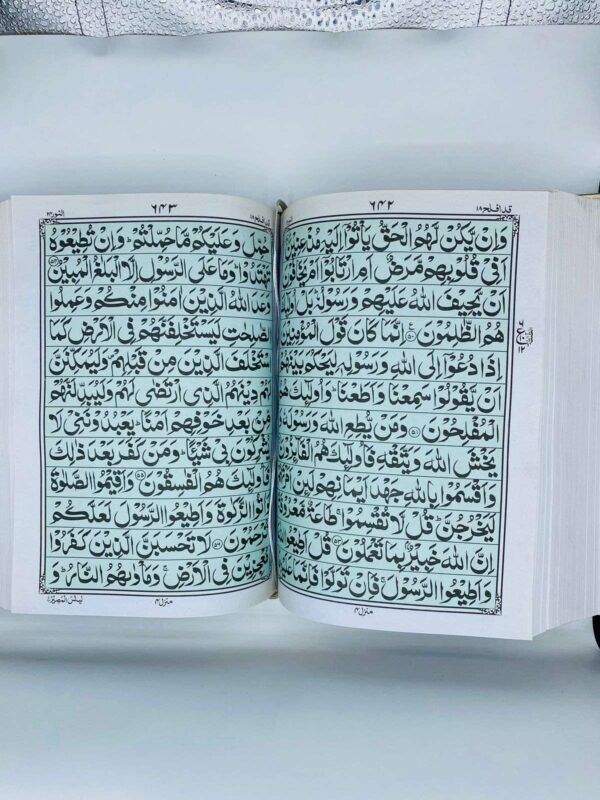 قد افلح ١٨
٦٤٢
وَاِنْ يَّكُنْ لَّهُمُ الْحَقُّ يَاْتُوْٓا اِلَيْهِ مُذْعِنِيْنَ
اَفِيْ قُلُوْبِهِمْ مَّرَضٌ اَمِ ارْتَابُوْٓا اَمْ يَخَافُوْنَ
اَنْ يَّحِيْفَ اللّٰهُ عَلَيْهِمْ وَرَسُوْلُهٗ ؕ بَلْ
هُمُ الظّٰلِمُوْنَ ﴿٥٠﴾ اِنَّمَا كَانَ قَوْلَ الْمُؤْمِنِيْنَ
اِذَا دُعُوْٓا اِلَى اللّٰهِ وَرَسُوْلِهٖ لِيَحْكُمَ بَيْنَهُمْ
اَنْ يَّقُوْلُوْا سَمِعْنَا وَاَطَعْنَا ؕ وَاُولٰٓئِكَ هُمُ
الْمُفْلِحُوْنَ ﴿٥١﴾ وَمَنْ يُّطِعِ اللّٰهَ وَرَسُوْلَهٗ وَ
يَخْشَ اللّٰهَ وَيَتَّقْهِ فَاُولٰٓئِكَ هُمُ الْفَآئِزُوْنَ
وَاَقْسَمُوْا بِاللّٰهِ جَهْدَ اَيْمَانِهِمْ لَئِنْ
لَيَخْرُجُنَّ ؕ قُلْ لَّا تُقْسِمُوْا ۚ طَاعَةٌ مَّعْرُوْفَةٌ
اِنَّ اللّٰهَ خَبِيْرٌۢ بِمَا تَعْمَلُوْنَ ﴿٥٣﴾ قُلْ اَطِيْعُوا
وَاَطِيْعُوا الرَّسُوْلَ ۚ فَاِنْ تَوَلَّوْا فَاِنَّمَا عَلَيْهِ
منزل ٤
قد افلح ١٨
٦٤٣
النور ٢٤
حُمِّلَ وَعَلَيْكُمْ مَّا حُمِّلْتُمْ ؕ وَاِنْ تُطِيْعُوْهُ
تَهْتَدُوْا ؕ وَمَا عَلَى الرَّسُوْلِ اِلَّا الْبَلٰغُ الْمُبِيْنُ
وَعَدَ اللّٰهُ الَّذِيْنَ اٰمَنُوْا مِنْكُمْ وَعَمِلُوا
الصّٰلِحٰتِ لَيَسْتَخْلِفَنَّهُمْ فِي الْاَرْضِ كَمَا
اسْتَخْلَفَ الَّذِيْنَ مِنْ قَبْلِهِمْ ۪ وَلَيُمَكِّنَنَّ
لَهُمْ دِيْنَهُمُ الَّذِي ارْتَضٰى لَهُمْ وَلَيُبَدِّلَنَّهُمْ
مِّنْۢ بَعْدِ خَوْفِهِمْ اَمْنًا ؕ يَعْبُدُوْنَنِيْ لَا
يُشْرِكُوْنَ بِيْ شَيْـًٔا ؕ وَمَنْ كَفَرَ بَعْدَ ذٰلِكَ
فَاُولٰٓئِكَ هُمُ الْفٰسِقُوْنَ ﴿٥٥﴾ وَاَقِيْمُوا الصَّلٰوةَ
وَاٰتُوا الزَّكٰوةَ وَاَطِيْعُوا الرَّسُوْلَ لَعَلَّكُمْ
تُرْحَمُوْنَ ﴿٥٦﴾ لَا تَحْسَبَنَّ الَّذِيْنَ كَفَرُوْا
مُعْجِزِيْنَ فِي الْاَرْضِ ۚ وَمَاْوٰىهُمُ النَّارُ ؕ وَ
منزل ٤
لَبِئْسَ الْمَصِيْرُ